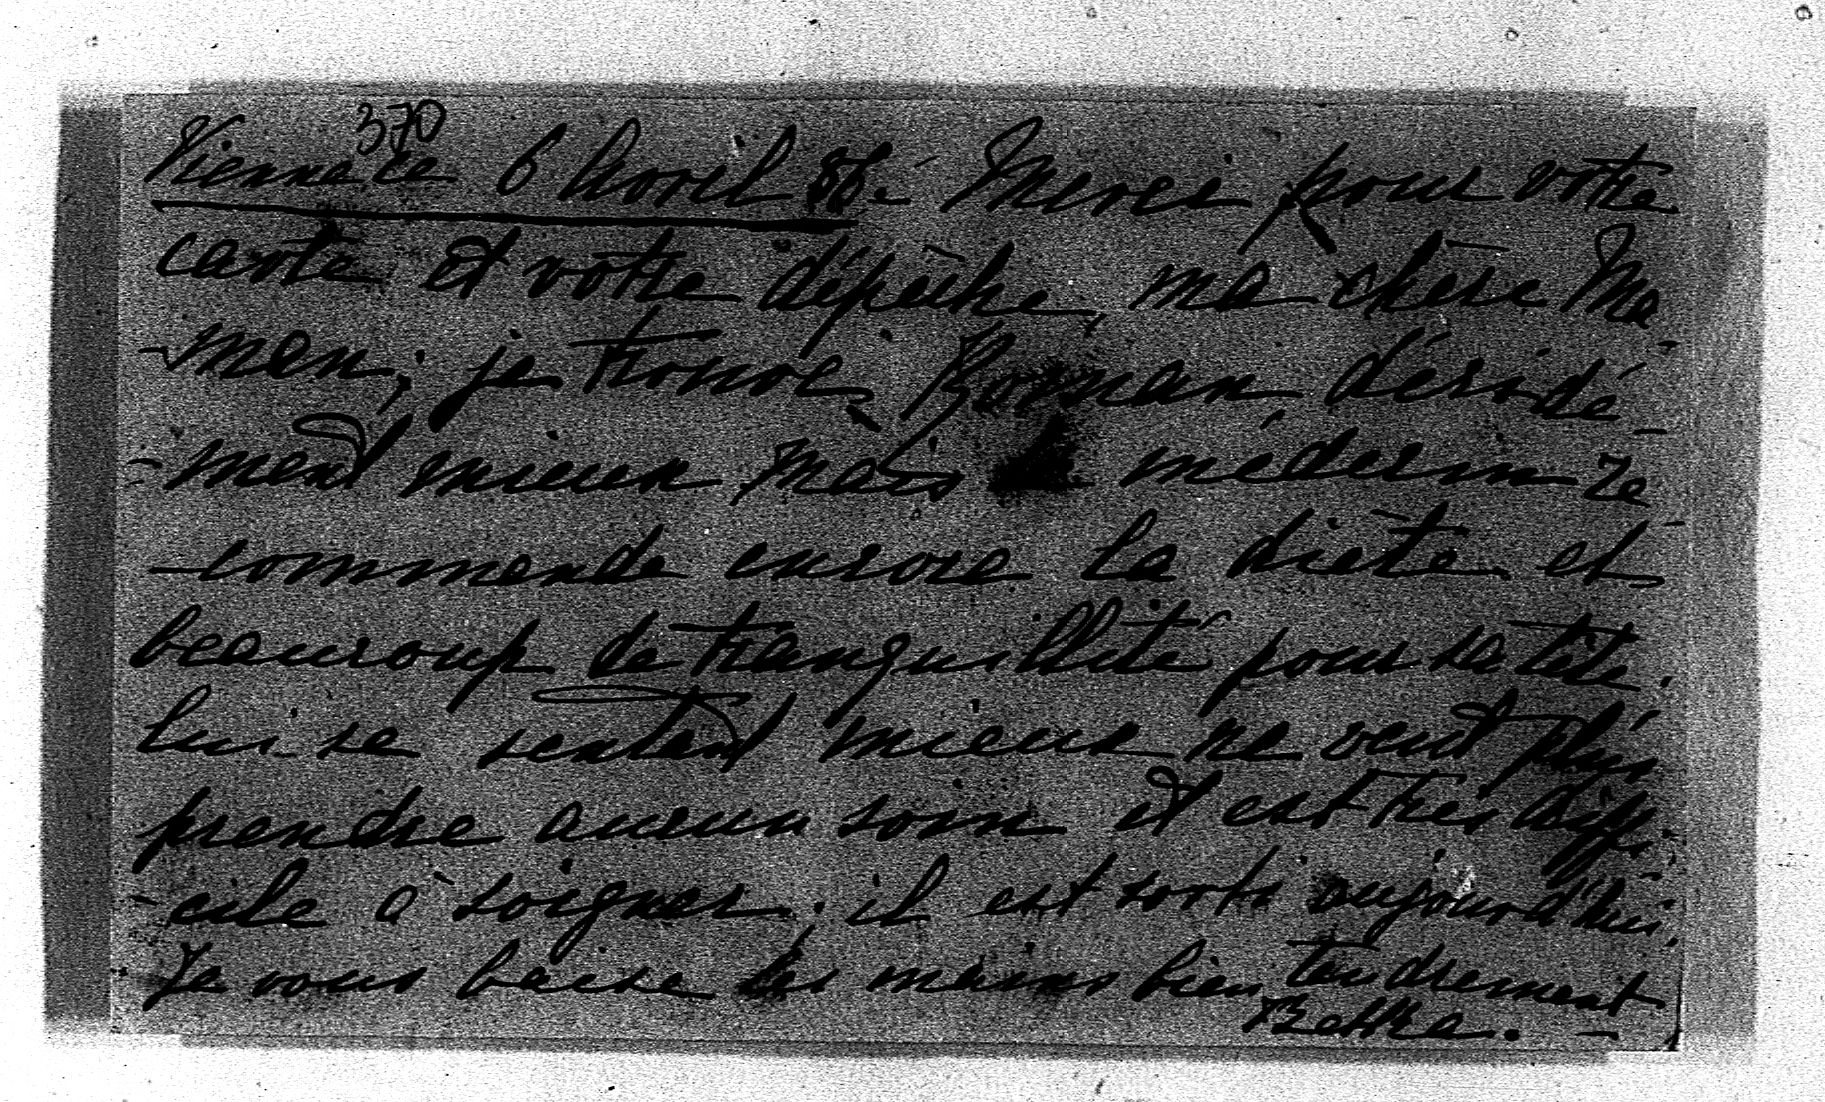 370
Vienne ce 6 Avril 86. Merci pour votre
carte et votre dépêche, ma chère Ma-
-man, je trouve Roman décidé-
-ment mieux mais le médecin re
-commande encore la diète et
beaucoup de tranquillité pour sa tête.
Lui se sentant mieux ne veut plus
prendre aucun soin il est très diffi-
-cile à soigner, il est sorti aujourd'hui.
Je vous baise les mains bien tendrement
Betka.